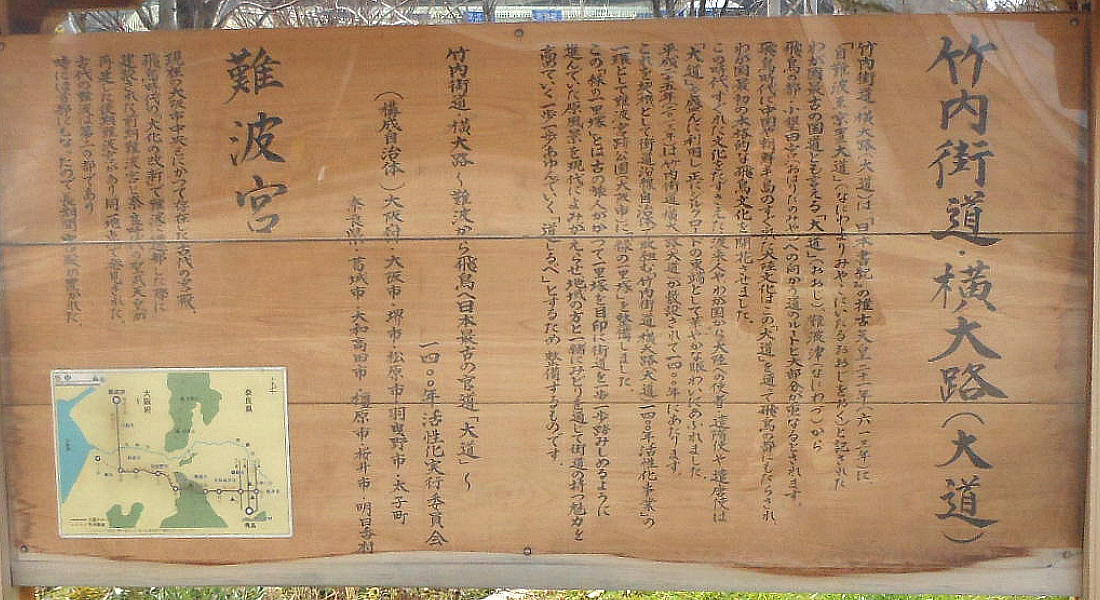 竹内街道・横大路(大道)
竹内街道・横大路(大道)は、「日本書紀」の推古天皇二十一年(六一三年)に
「自難波至京置大道」(なにわよりみやこにいたるおおじをおく)と記された
わが国最古の国道とも言える「大道」(おおじ)難波津(なにわづ)から
飛鳥の都・小墾田宮(おはりだのみや)への向かう道のルートと大部分が重なるとされます。
飛鳥時代に中国や朝鮮半島のすぐれた大陸文化はこの「大道」を通って飛鳥の都にもたらされ
わが国最初の本格的な飛鳥文化を開花させました。
この時代、すぐれた文化をたずさえた渡来人やわが国から大陸への使者・遣隋使や遣唐使は
「大道」を盛んに利用し、正にシルクロードの東端として華やかな賑わいにあふれました
平成二十五年(二〇一三年)は竹内街道・横大路(大道)が敷設されて一四〇〇年にあたります。
これを契機として街道沿線自治体で取組む竹内街道・横大路(大道)一四〇〇年活性化事業の
一環として難波宮跡公園(大阪市)に「様の一里塚」を整備しました
この「様の一里塚」とは古の旅人がかつて一里塚を目印に街道を一歩一歩踏みしめるように
進んでいた原風景を現代によみがえらせ地域の方と一緒にみどりを通して街道の持つ魅力を
高めていく一歩一歩あゆんでいく「道しるべ」とするため整備するものです。
竹内街道・横大路〜難波から飛鳥へ日本最古の官道「大道」〜
一四〇〇年活性化実行委員会
(構成自治体)大阪府・大阪市・堺市・松原市・羽曳野市・太子町
奈良県・葛城市・大和高田市・橿原市・桜井市・明日香村
難波宮
現在の大阪市中央区にかつて存在した古代の宮殿。
飛鳥時代の「大化の改新」で難波に遷都した際に
建設された前期難波宮と奈良時代の聖武天皇が
再建した後期難波宮があり同一地点で発見された。
古代の難波は第二の都であり
時には首都にもなったので長期間宮殿が置かれた。
大阪府
奈良県